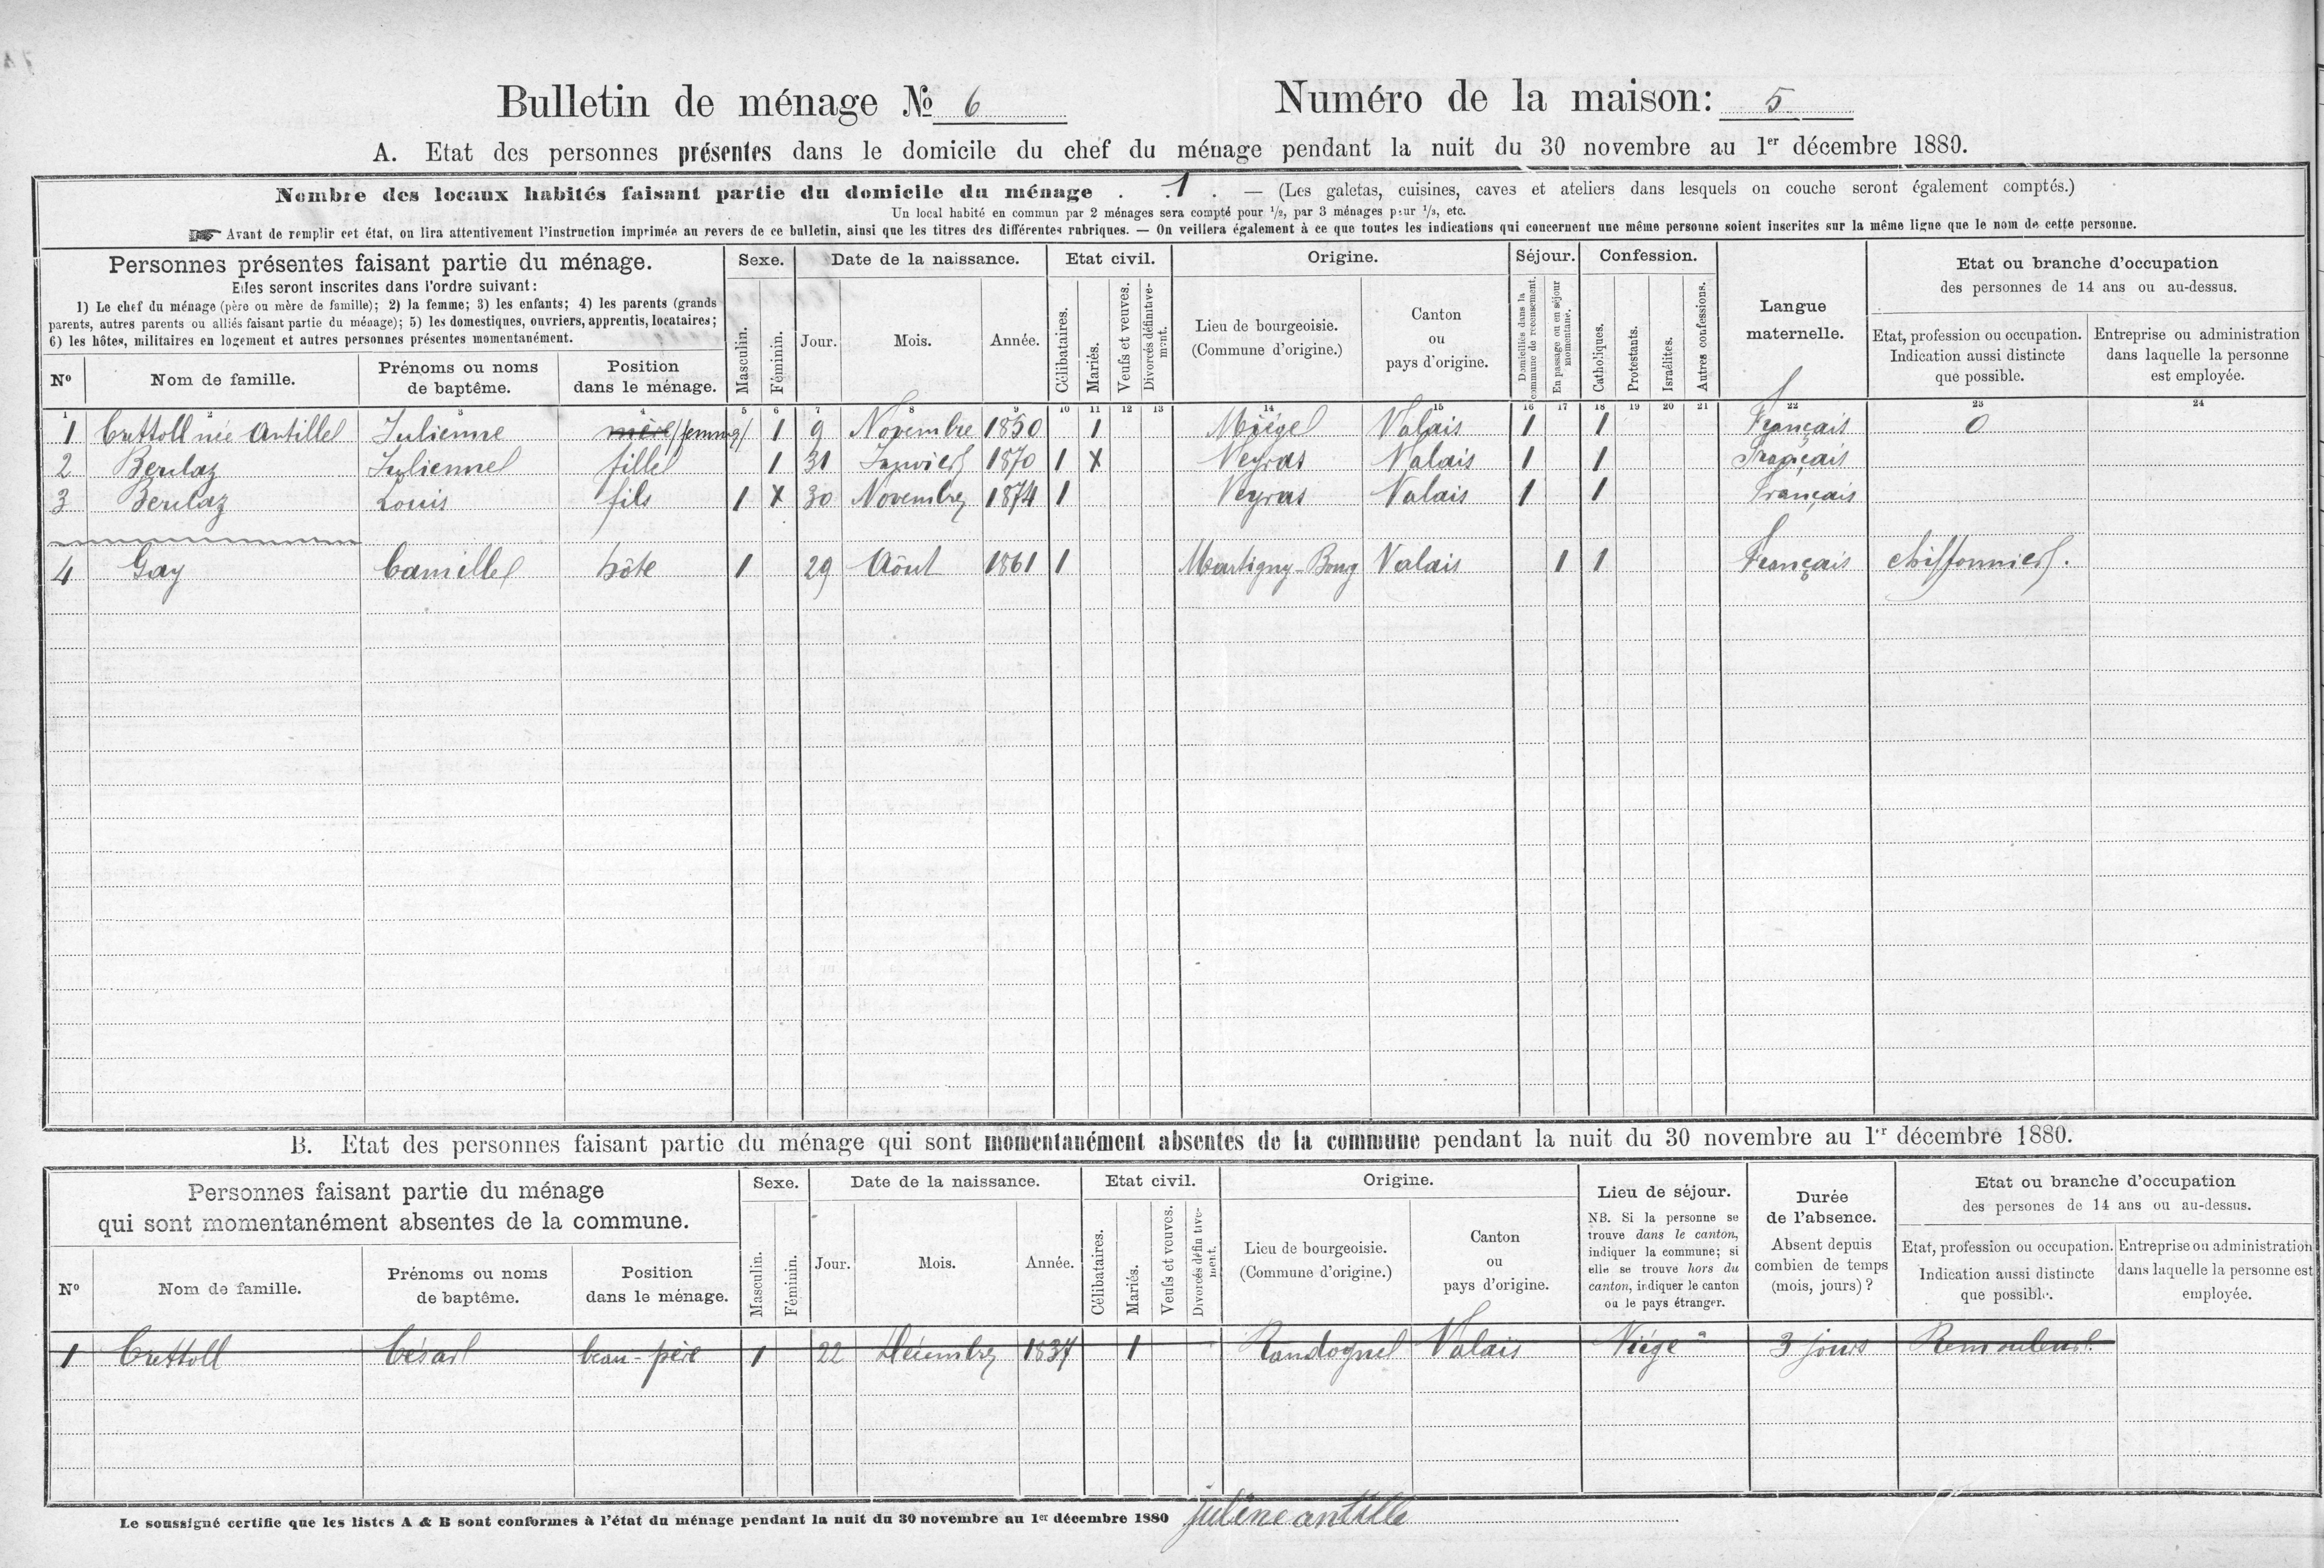 Bulletin de ménage № 6 Numéro de la maison: 5
A. Etat des personnes présentes dans le domicile du chef du ménage pendant la nuit du 30 novembre au 1er décembre 1880.
Nombre des locaux habités faisant partie du domicile du ménage . 1 . — (Les galetas, cuisines, caves et ateliers dans lesquels on couche seront également comptés.)
Un local habité en commun par 2 ménages sera compté pour 1/2, par 3 ménages pour 1/3, etc.
☛ Avant de remplir cet état, on lira attentivement l'instruction imprimée au revers de ce bulletin, ainsi que les titres des différentes rubriques. — On veillera également à ce que toutes les indications qui concernent une même personne soient inscrites sur la même ligne que le nom de cette personne.
Personnes présentes faisant partie du ménage.
Elles seront inscrites dans l'ordre suivant:
1) Le chef du ménage (père ou mère de famille); 2) la femme; 3) les enfants; 4) les parents (grands
parents, autres parents ou alliés faisant partie du ménage); 5) les domestiques, ouvriers, apprentis, locataires;
6) les hôtes, militaires en logement et autres personnes présentes momentanément.
No
Nom de famille.
Prénoms ou noms
de baptême.
Position
dans le ménage.
Sexe.
Masculin.
Féminin.
Date de la naissance.
Jour.
Mois.
Année.
Etat civil.
Célibataires.
Mariés.
Veufs et veuves.
Divorcés définitive-
ment.
Origine.
Lieu de bourgeoisie.
(Commune d'origine.)
Canton
ou
pays d'origine.
Séjour.
Domiciliés dans la
commune de recensement.
En passage ou en séjour
momentané.
Confession.
Catholiques.
Protestants.
Israélites.
Autres confessions.
Langue
maternelle.
Etat ou branche d'occupation
des personnes de 14 ans ou au-dessus.
Etat, profession ou occupation.
Indication aussi distincte
que possible.
Entreprise ou administration
dans laquelle la personne
est employée.
1 2 3 4 5 6 7 8 9 10 11 12 13 14 15 16 17 18 19 20 21 22 23 24
1 Crettoll née Antille Julienne mère /femme/ 1 9 Novembre 1850 1 Miége Valais 1 1 Français 0
2 Berclaz Julienne fille 1 31 Janvier 1870 1 X Veyras Valais 1 1 Français
3 Berclaz Louis fils 1 X 30 Novembre 1874 1 Veyras Valais 1 1 Français
4 Gay Camille hôte 1 29 Aôut 1861 1 Martigny-Bourg Valais 1 1 Français chiffonnier.
B. Etat des personnes faisant partie du ménage qui sont momentanément absentes de la commune pendant la nuit du 30 novembre au 1er décembre 1880.
Personnes faisant partie du ménage
qui sont momentanément absentes de la commune.
No
Nom de famille.
Prénoms ou noms
de baptême.
Position
dans le ménage.
Sexe.
Masculin.
Féminin.
Date de la naissance.
Jour.
Mois.
Année.
Etat civil.
Célibataires.
Mariés.
Veufs et veuves.
Divorcés définitive-
ment.
Origine.
Lieu de bourgeoisie.
(Commune d'origine.)
Canton
ou
pays d'origine.
Lieu de séjour.
NB. Si la personne se
trouve dans le canton,
indiquer la commune; si
elle se trouve hors du
canton, indiquer le canton
ou le pays étranger.
Durée
de l'absence.
Absent depuis
combien de temps
(mois, jours) ?
Etat ou branche d'occupation
des persones de 14 ans ou au-dessus.
Etat, profession ou occupation.
Indication aussi distincte
que possible.
Entreprise ou administration
dans laquelle la personne est
employée.
1 Crettoll César beau-père 1 22 Décembre 1837 1 Randogne Valais Viége 3 jours Remouleur.
Le soussigné certifie que les listes A & B sont conformes à l'état du ménage pendant la nuit du 30 novembre au 1er décembre 1880 juliène antille